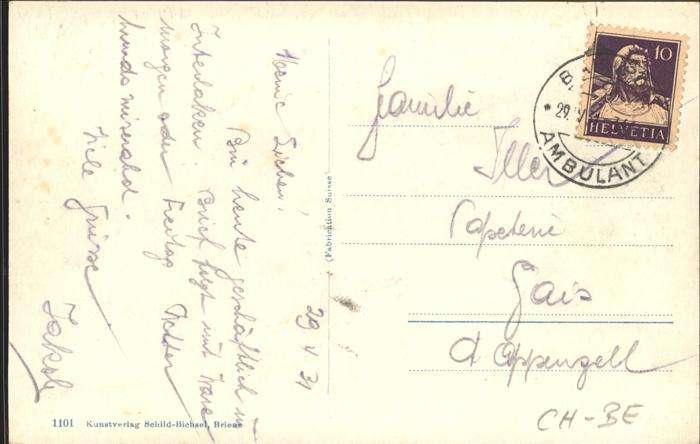 29 V 31
Meine Lieben!
Bin heute geschäftlich in
Interlaken. Brief folgt mit Ware
morgen oder Freitag. Wetter
hundsmiserabel.
Viele Grüsse
Jakob
Familie
Iller
Papeterie
Gais
Ct Appenzell
10
HELVETIA
29. V
AMBULANT
(Fabrication Suisse)
1101 Kunstverlag Schild-Bichsel, Brienz
CH-BE